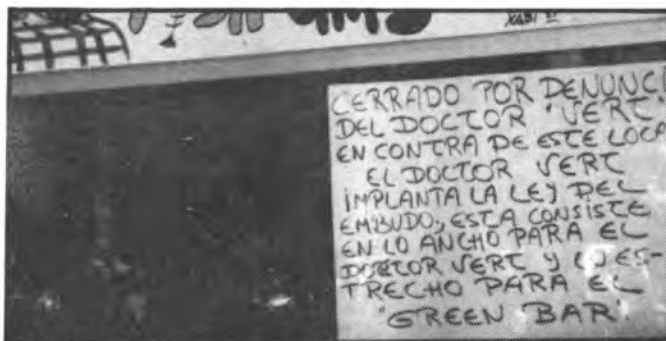 CERRADO POR DENUNCI
DEL DOCTOR 'VERT'
EN CONTRA DE ESTE LOCA
EL DOCTOR VERT
IMPLANTA LA LEY DEL
EMBUDO, ESTA CONSISTE
EN LO ANCHO PARA EL
DOCTOR VERT Y LO ES-
TRECHO PARA EL
'GREEN BAR'